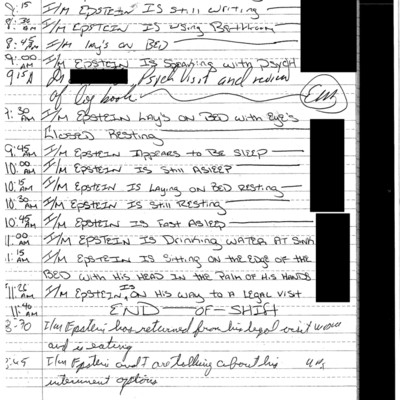 8:15 AM I/M EPSTEIN IS Still Writing
8:30 AM I/M EPSTEIN IS Using Bathroom
8:45 AM I/M lay's on BED
9:00 AM I/M EPSTEIN IS Speaking with Psych
9:15A Dr. Psych visit and review
of Log book
9:30 AM I/M EPSTEIN Lay's on BED with Eye's
CLOSED Resting
9:45 AM I/M EPSTEIN Appears to BE SlEEP
10:00 AM I/M EPSTEIN IS Still ASlEEP
10:15 AM I/M EPSTEIN IS Laying on BED Resting
10:30 AM I/M EPSTEIN IS Still Resting
10:45 AM I/M EPSTEIN IS FAST ASlEEp
11:00 AM I/M EPSTEIN IS Drinking WATER AT Sink
11:15 AM I/M EPSTEIN IS Sitting on the Edge of the
BED with His HEAD IN the Palm of His HANDS
11:25 AM I/M EPSTEIN IS on His WAY to A LEGAL VISIT
11:40 AM END OF SHIFT
3:30 I/m Epstein has returned from his legal visit
and is eating
3:45 I/m Epstein and I are talking about his
internment options